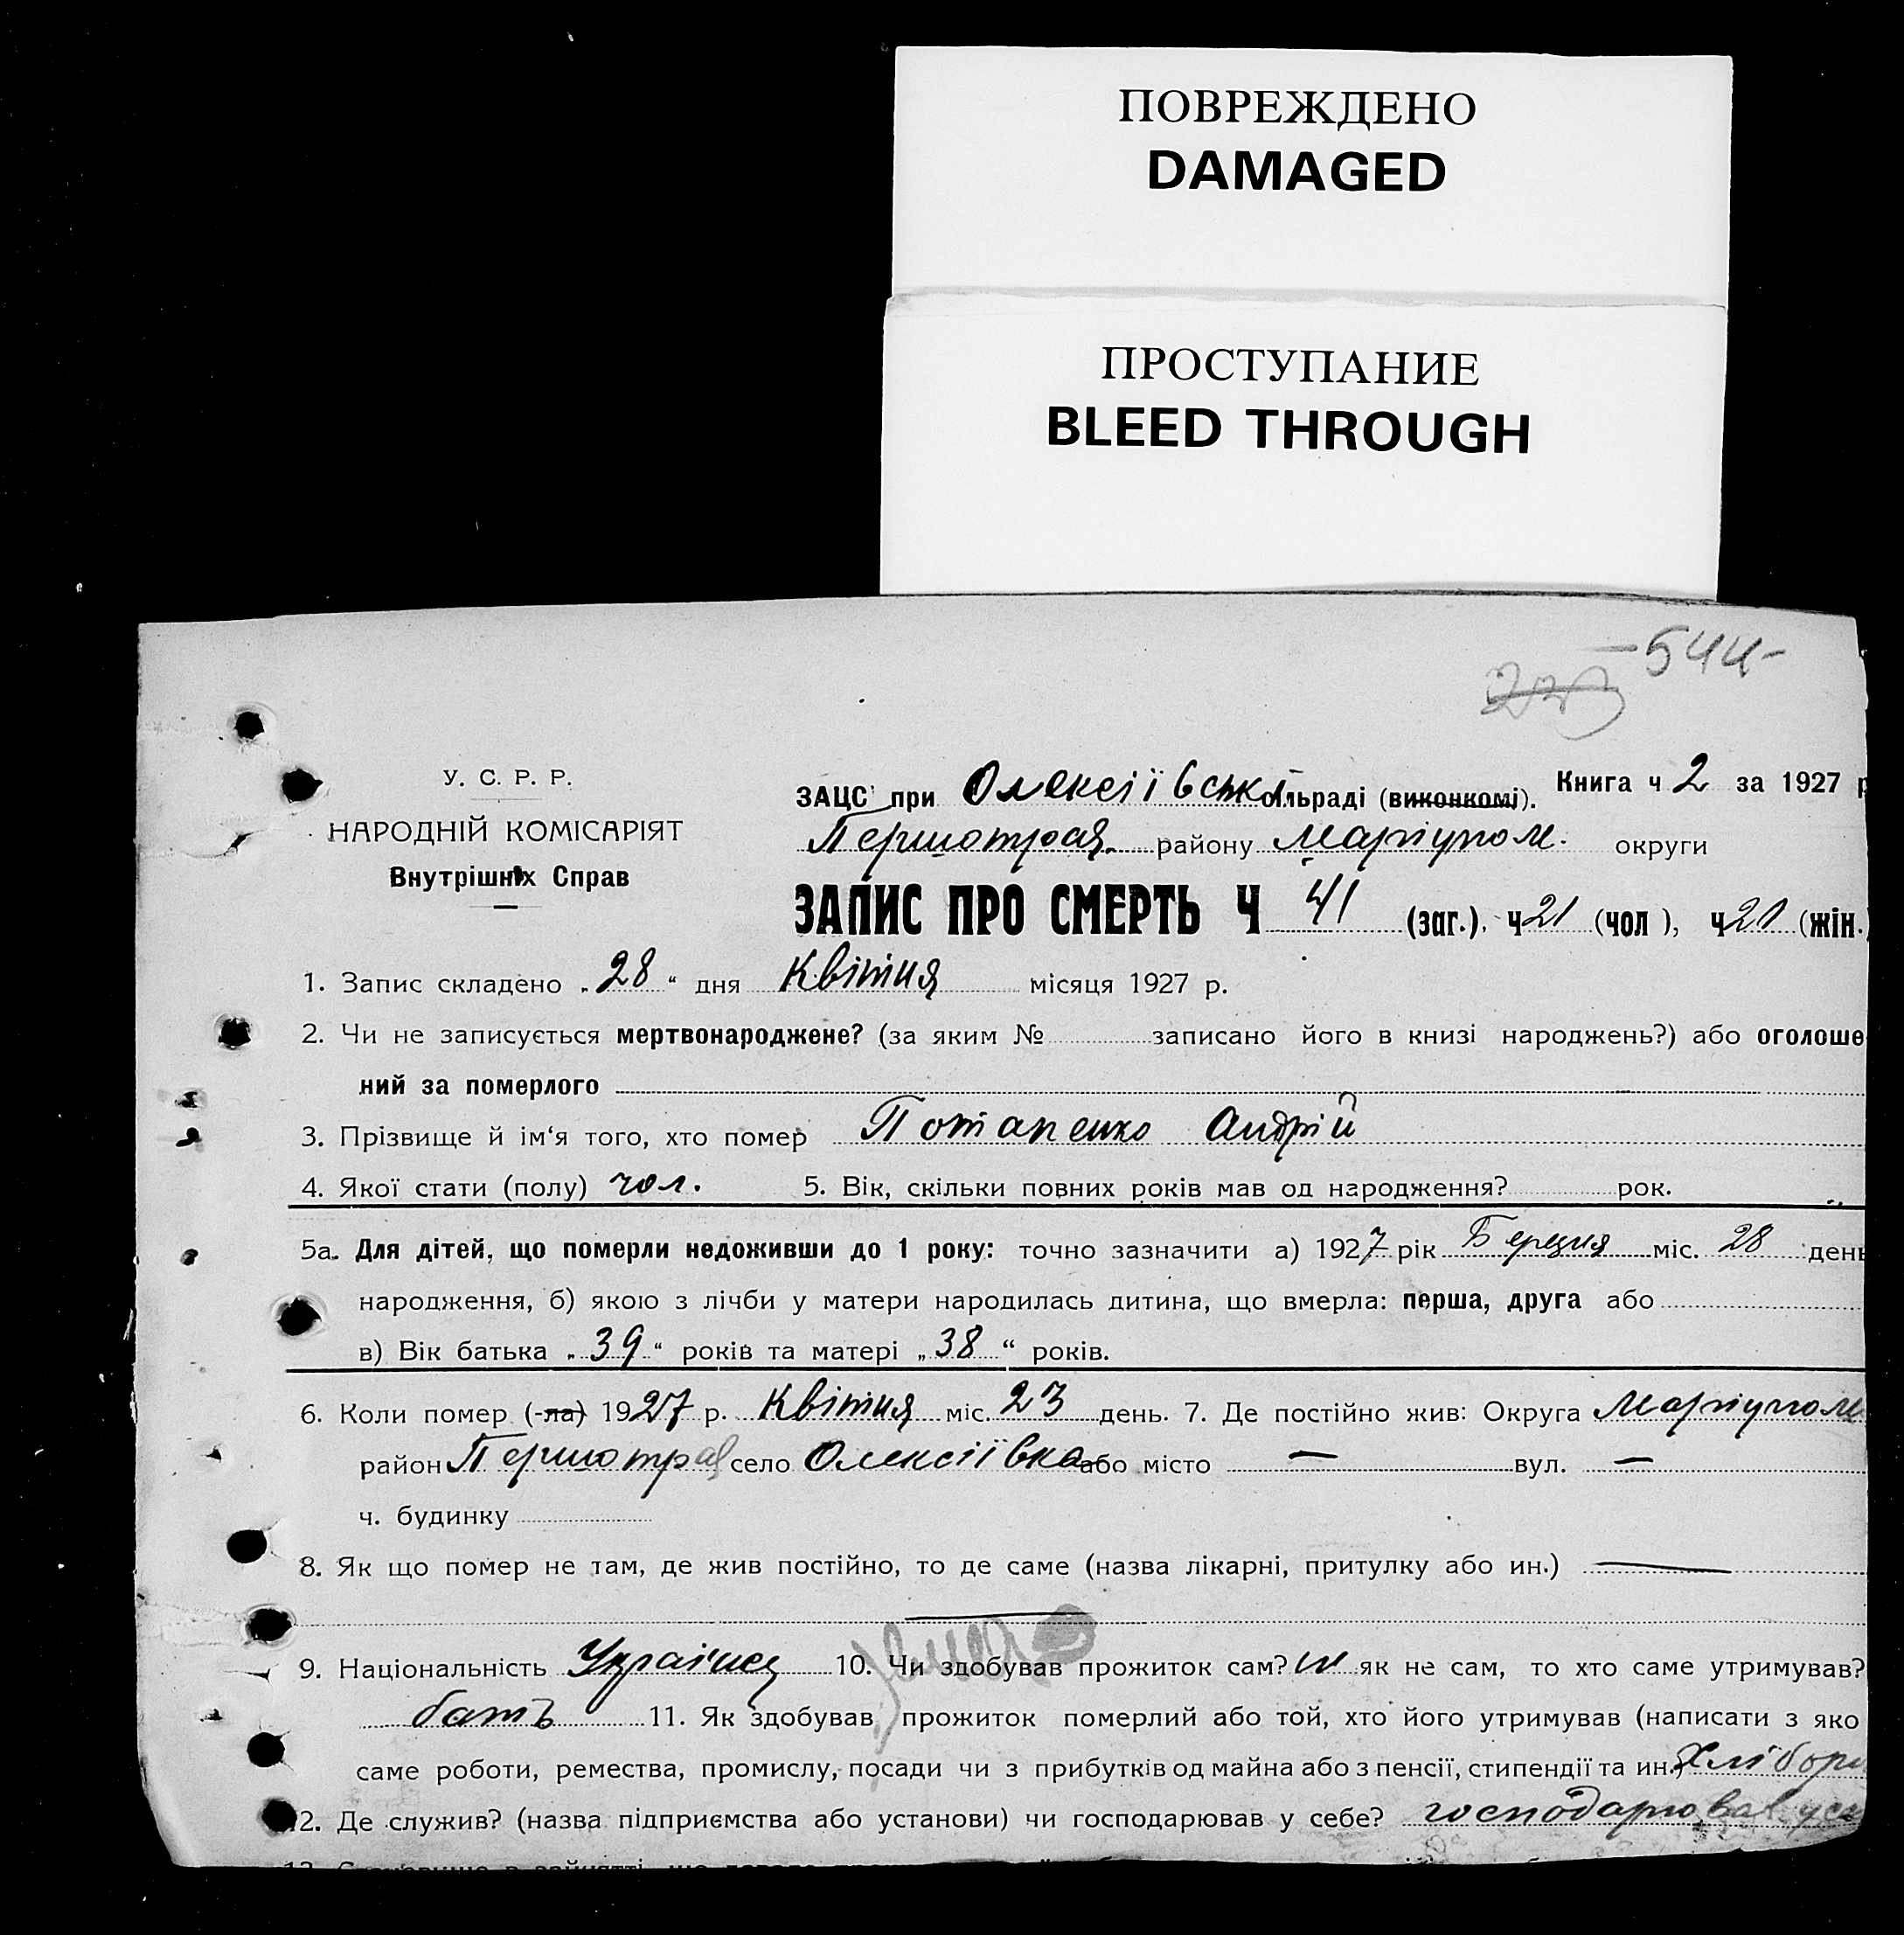 ПОВРЕЖДЕНО
DAMAGED
ПРОСТУПАНИЕ
BLEED THROUGH
-544-
У. С. Р. Р.
НАРОДНІЙ КОМІСАРІЯТ
Внутрішніх Справ
ЗАЦС при Олексіївській сільраді (виконкомі). Книга ч 2 за 1927 р
Першотрав. району Маріупол. округи
ЗАПИС ПРО СМЕРТЬ Ч 41 (заг.), ч 21 (чол), ч 20 (жін.)
1. Запис складено „28“ дня Квітня місяця 1927 р.
2. Чи не записується мертвонароджене? (за яким № записано його в книзі народжень?) або оголоше-
ний за померлого
3. Прізвище й ім‘я того, хто помер Потапенко Андрій
4. Якої стати (полу) чол. 5. Вік, скільки повних років мав од народження? рок.
5а. Для дітей, що померли недоживши до 1 року: точно зазначити а) 1927 рік Березня міс. 28 день
народження, б) якою з лічби у матери народилась дитина, що вмерла: перша, друга або
в) Вік батька „39“ років та матері „38“ років.
6. Коли помер (-ла) 1927 р. Квітня міс. 23 день. 7. Де постійно жив: Округа Маріупол
район Першотрав село Олексіївка або місто — вул. —
ч. будинку
8. Як що помер не там, де жив постійно, то де саме (назва лікарні, притулку або ин.) —
9. Національність Украінец 10. Чи здобував прожиток сам? ні як не сам, то хто саме утримував?
бать 11. Як здобував прожиток померлий або той, хто його утримував (написати з яко
саме роботи, ремества, промислу, посади чи з прибутків од майна або з пенсії, стипендії та ин.) хлібор
12. Де служив? (назва підприємства або установи) чи господарював у себе? господарював у се